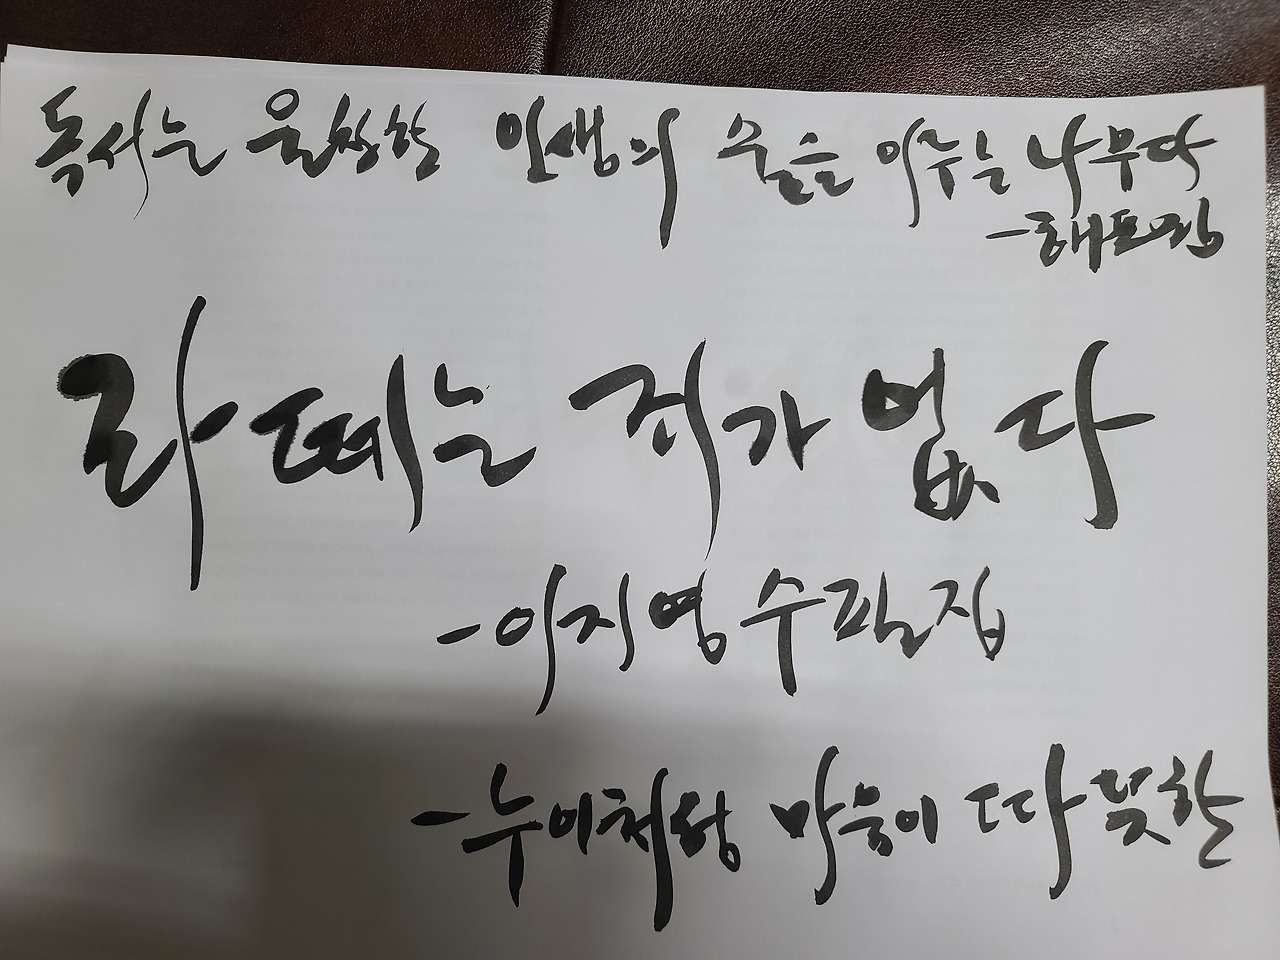 독서는 울창한 인생의 숲을 이루는 나무다
라떼는 죄가 없다
-이지영 수필집
-누이처럼 마음이 따뜻한